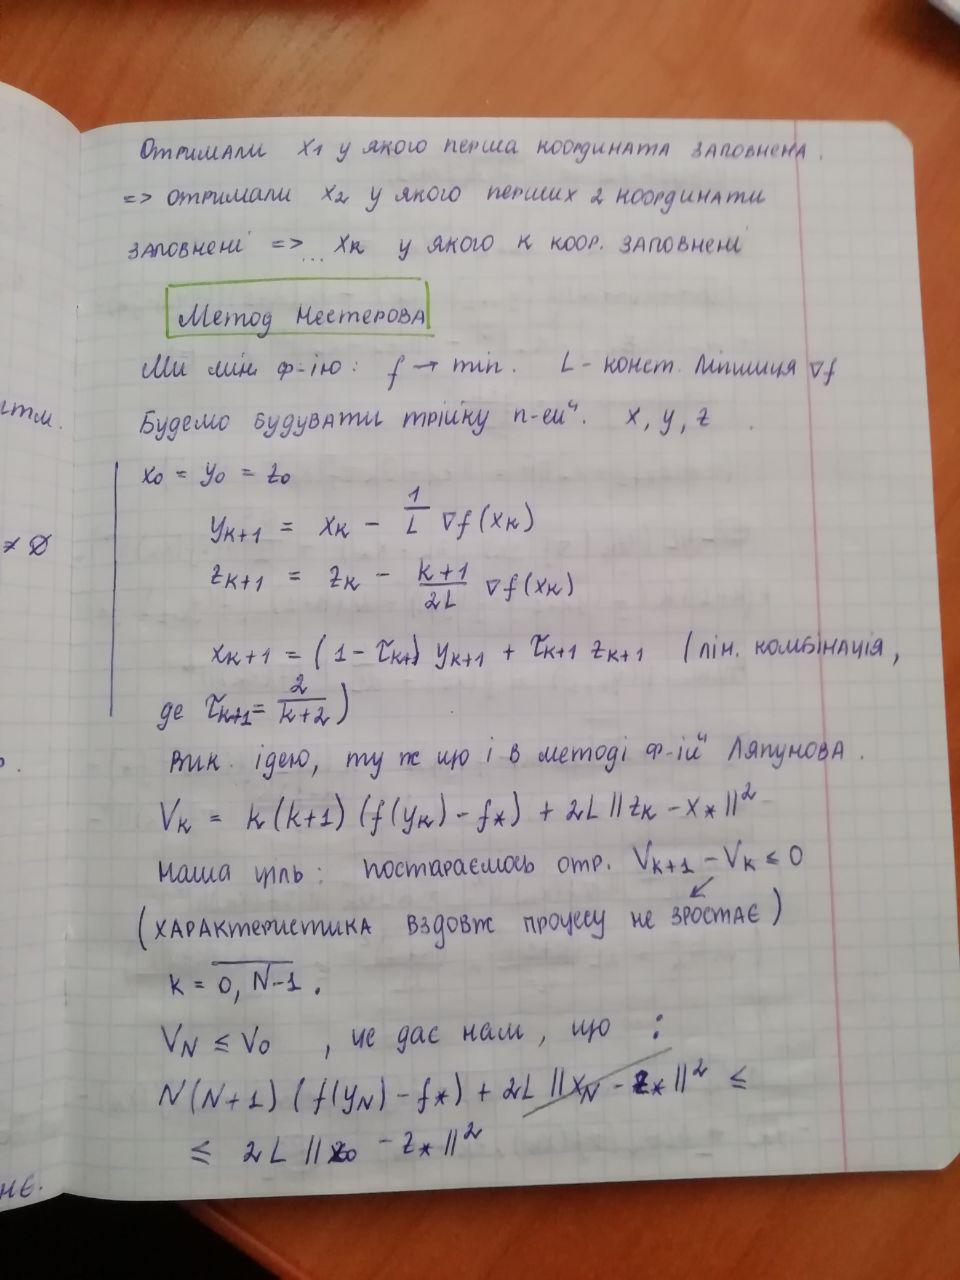 Отримали x₁ у якого перша координата заповнена.
=> отримали x₂ у якого перших 2 координати
заповнені => ... xₖ у якого к коор. заповнені
Метод Нестерова
Ми мін. ф-ію: f → min. L - конст. Ліпшиця ∇f
Будемо будувати трійку п-ей. x, y, z
x₀ = y₀ = z₀
yₖ₊₁ = xₖ - 1/L ∇f(xₖ)
zₖ₊₁ = zₖ - (k+1)/(2L) ∇f(xₖ)
xₖ₊₁ = (1 - τₖ₊₁) yₖ₊₁ + τₖ₊₁ zₖ₊₁ (лін. комбінація,
де τₖ₊₁ = 2/(k+2))
Вик. ідею, ту ж що і в методі ф-ій Ляпунова.
Vₖ = k(k+1)(f(yₖ) - f*) + 2L||zₖ - x*||²
Наша ціль: постараємось отр. Vₖ₊₁ - Vₖ ≤ 0
(характеристика вздовж процесу не зростає)
k = 0, N-1.
V_N ≤ V₀, це дає нам, що :
N(N+1)(f(y_N) - f*) + 2L||x_N - z*||² ≤
≤ 2L||z₀ - z*||²
≠ ∅